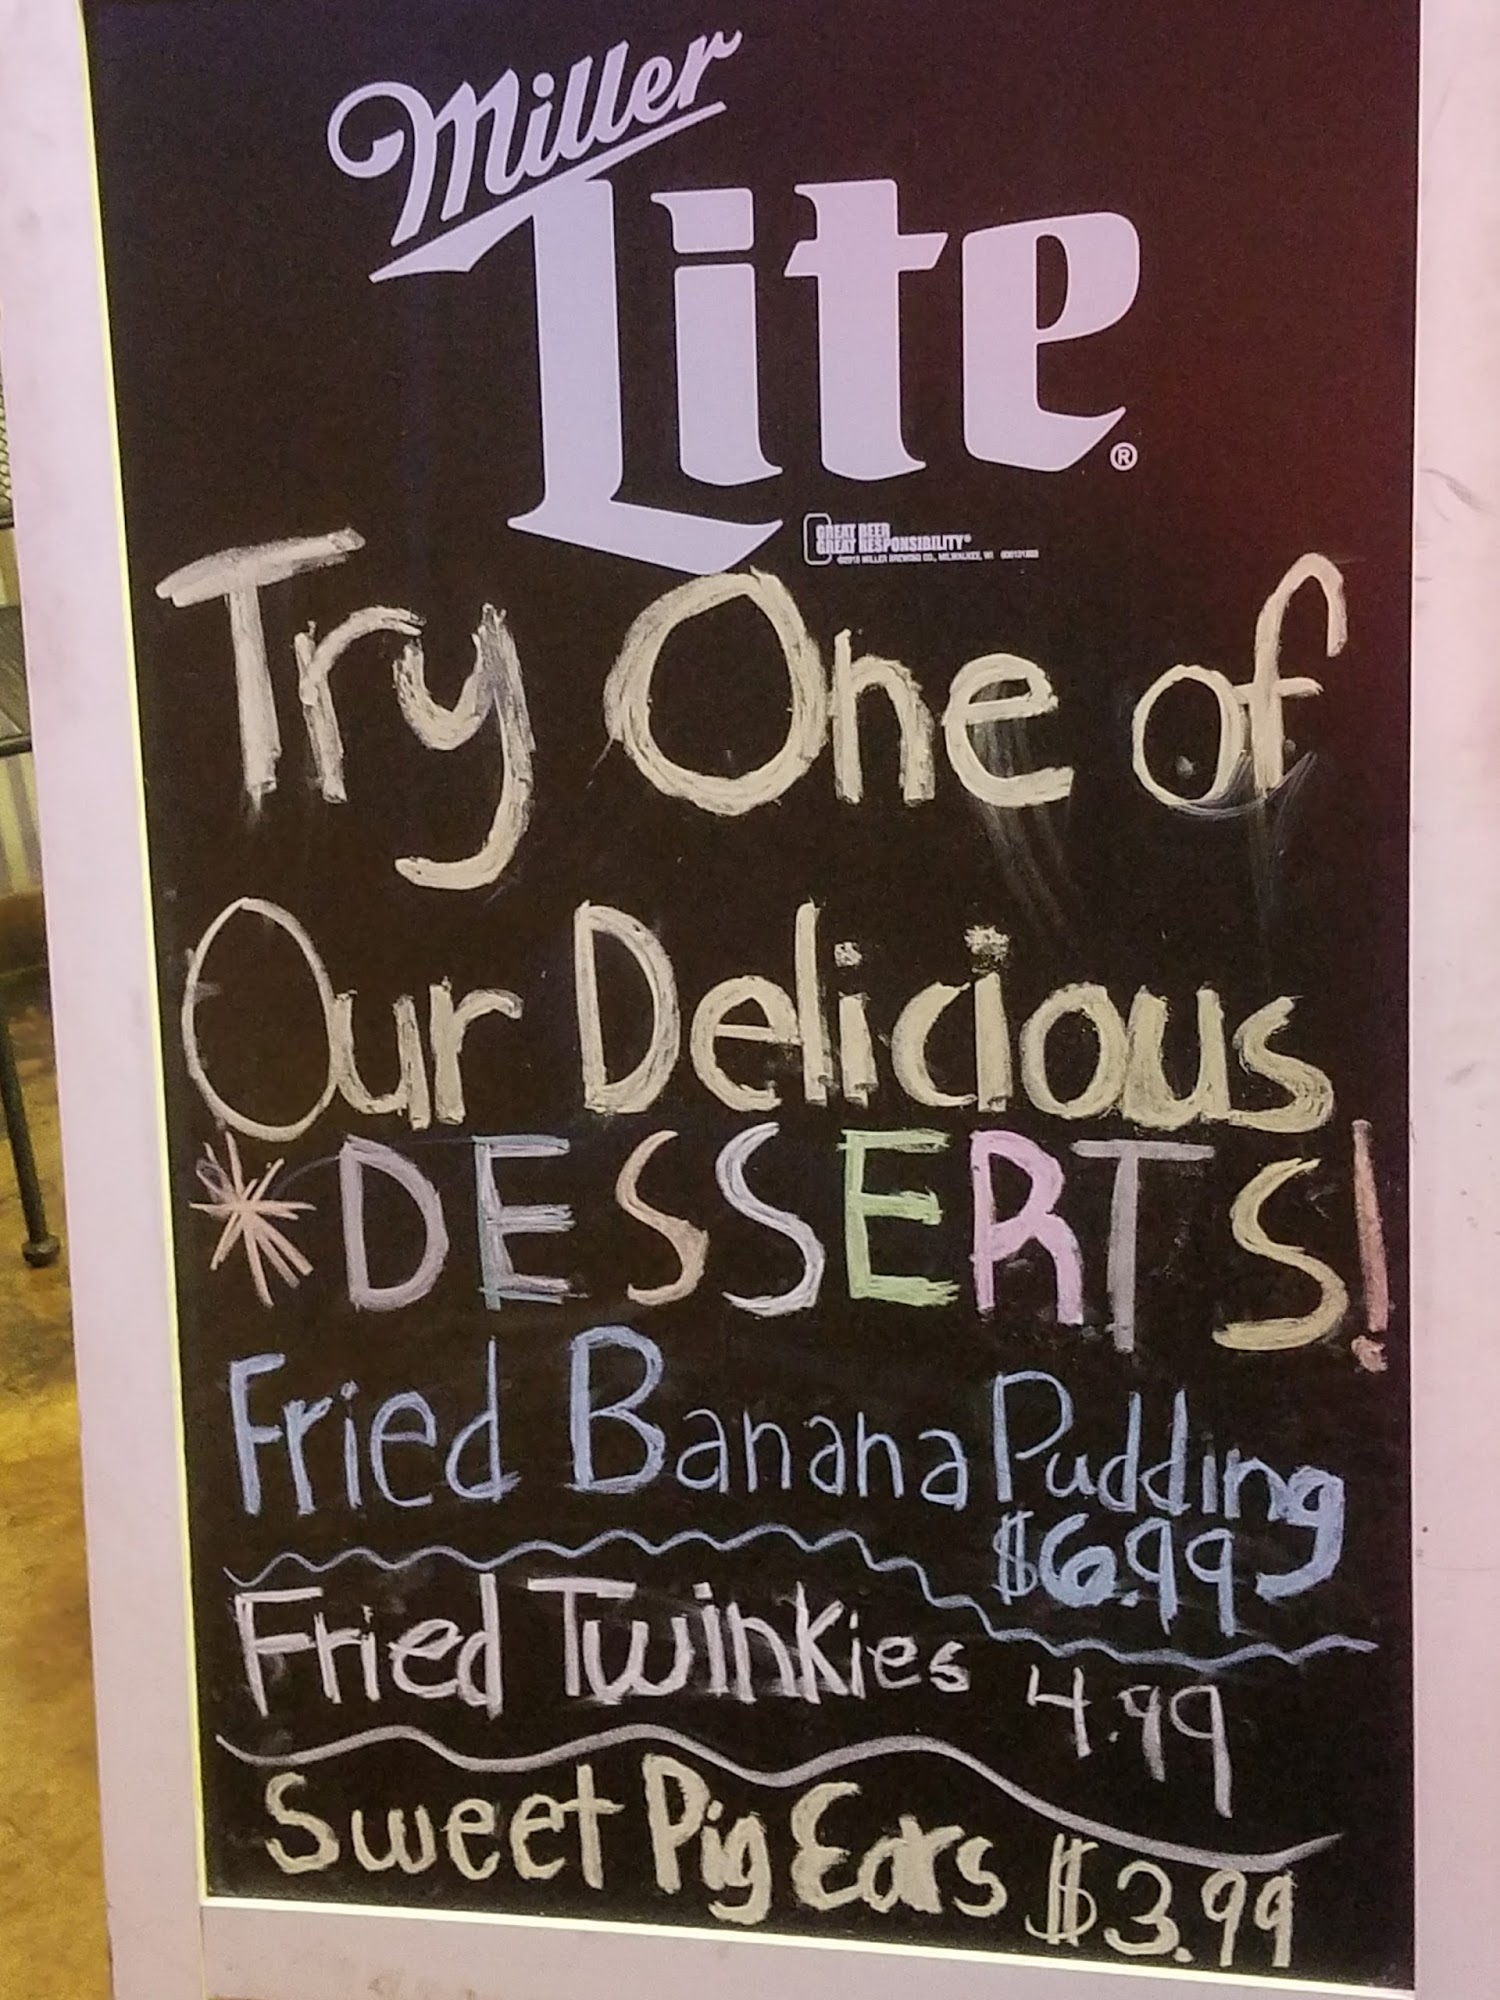 Miller
Lite®
GREAT BEER
GREAT RESPONSIBILITY®
©2018 MILLER BREWING CO., MILWAUKEE, WI
Try One of
Our Delicious
*DESSERTS!
Fried Banana Pudding
$6.99
Fried Twinkies 4.99
Sweet Pig Ears $3.99